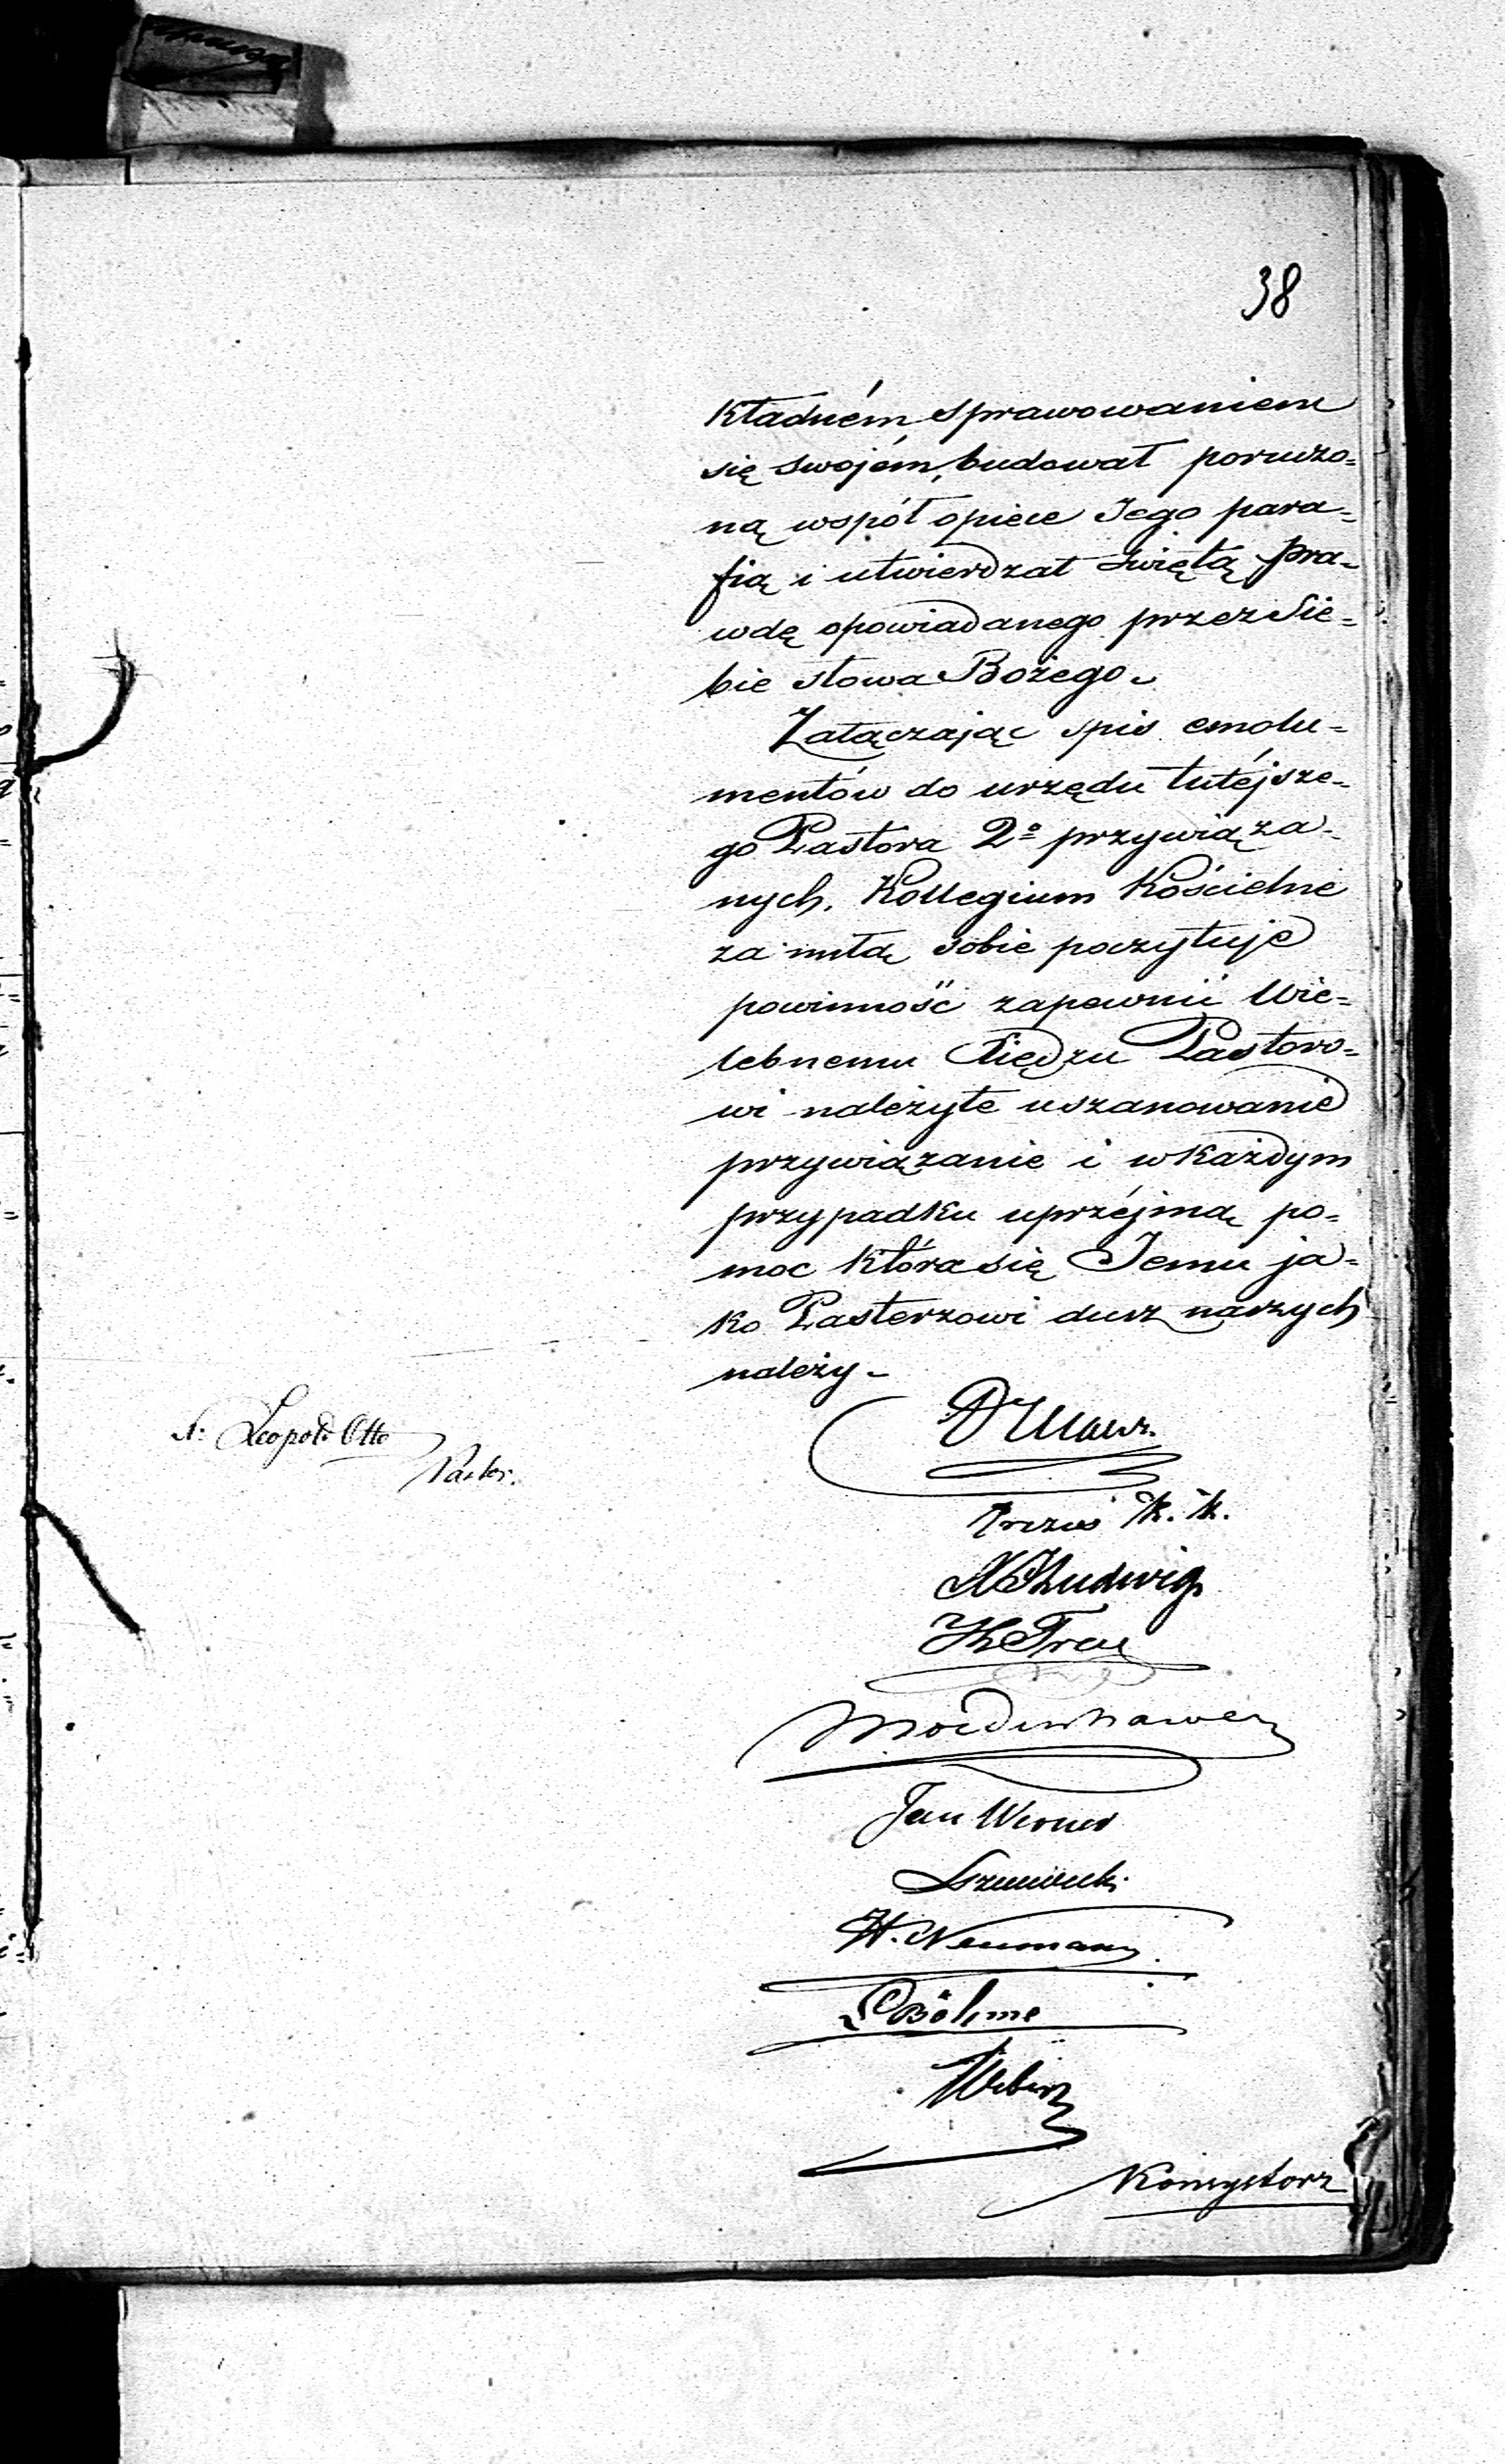 38
kładném sprawowaniem
się swojém, budował poruczo=
ną współ opiece Jego para=
fią i utwierdzał świętą pra=
wdę opowiadanego przez Sie=
bie słowa Bożego.
Załączając spis emolu=
mentów do urzędu tutéjsze=
go Pastora 2º przywiąza=
nych. Kollegium Kościelne
za miłą sobie poczytuje
powinność zapewnić Wie=
lebnemu Księdzu Pastoro=
wi należyte uszanowanie
przywiązanie i w każdym
przypadku uprzéjmą po=
moc która się Jemu ja=
ko Pasterzowi dusz naszych
należy.
Leopold Otto
Pastor.
Prezes K. K.
Ludwig
Jan Werner
H. Neumann
Böhme
Konsystorz